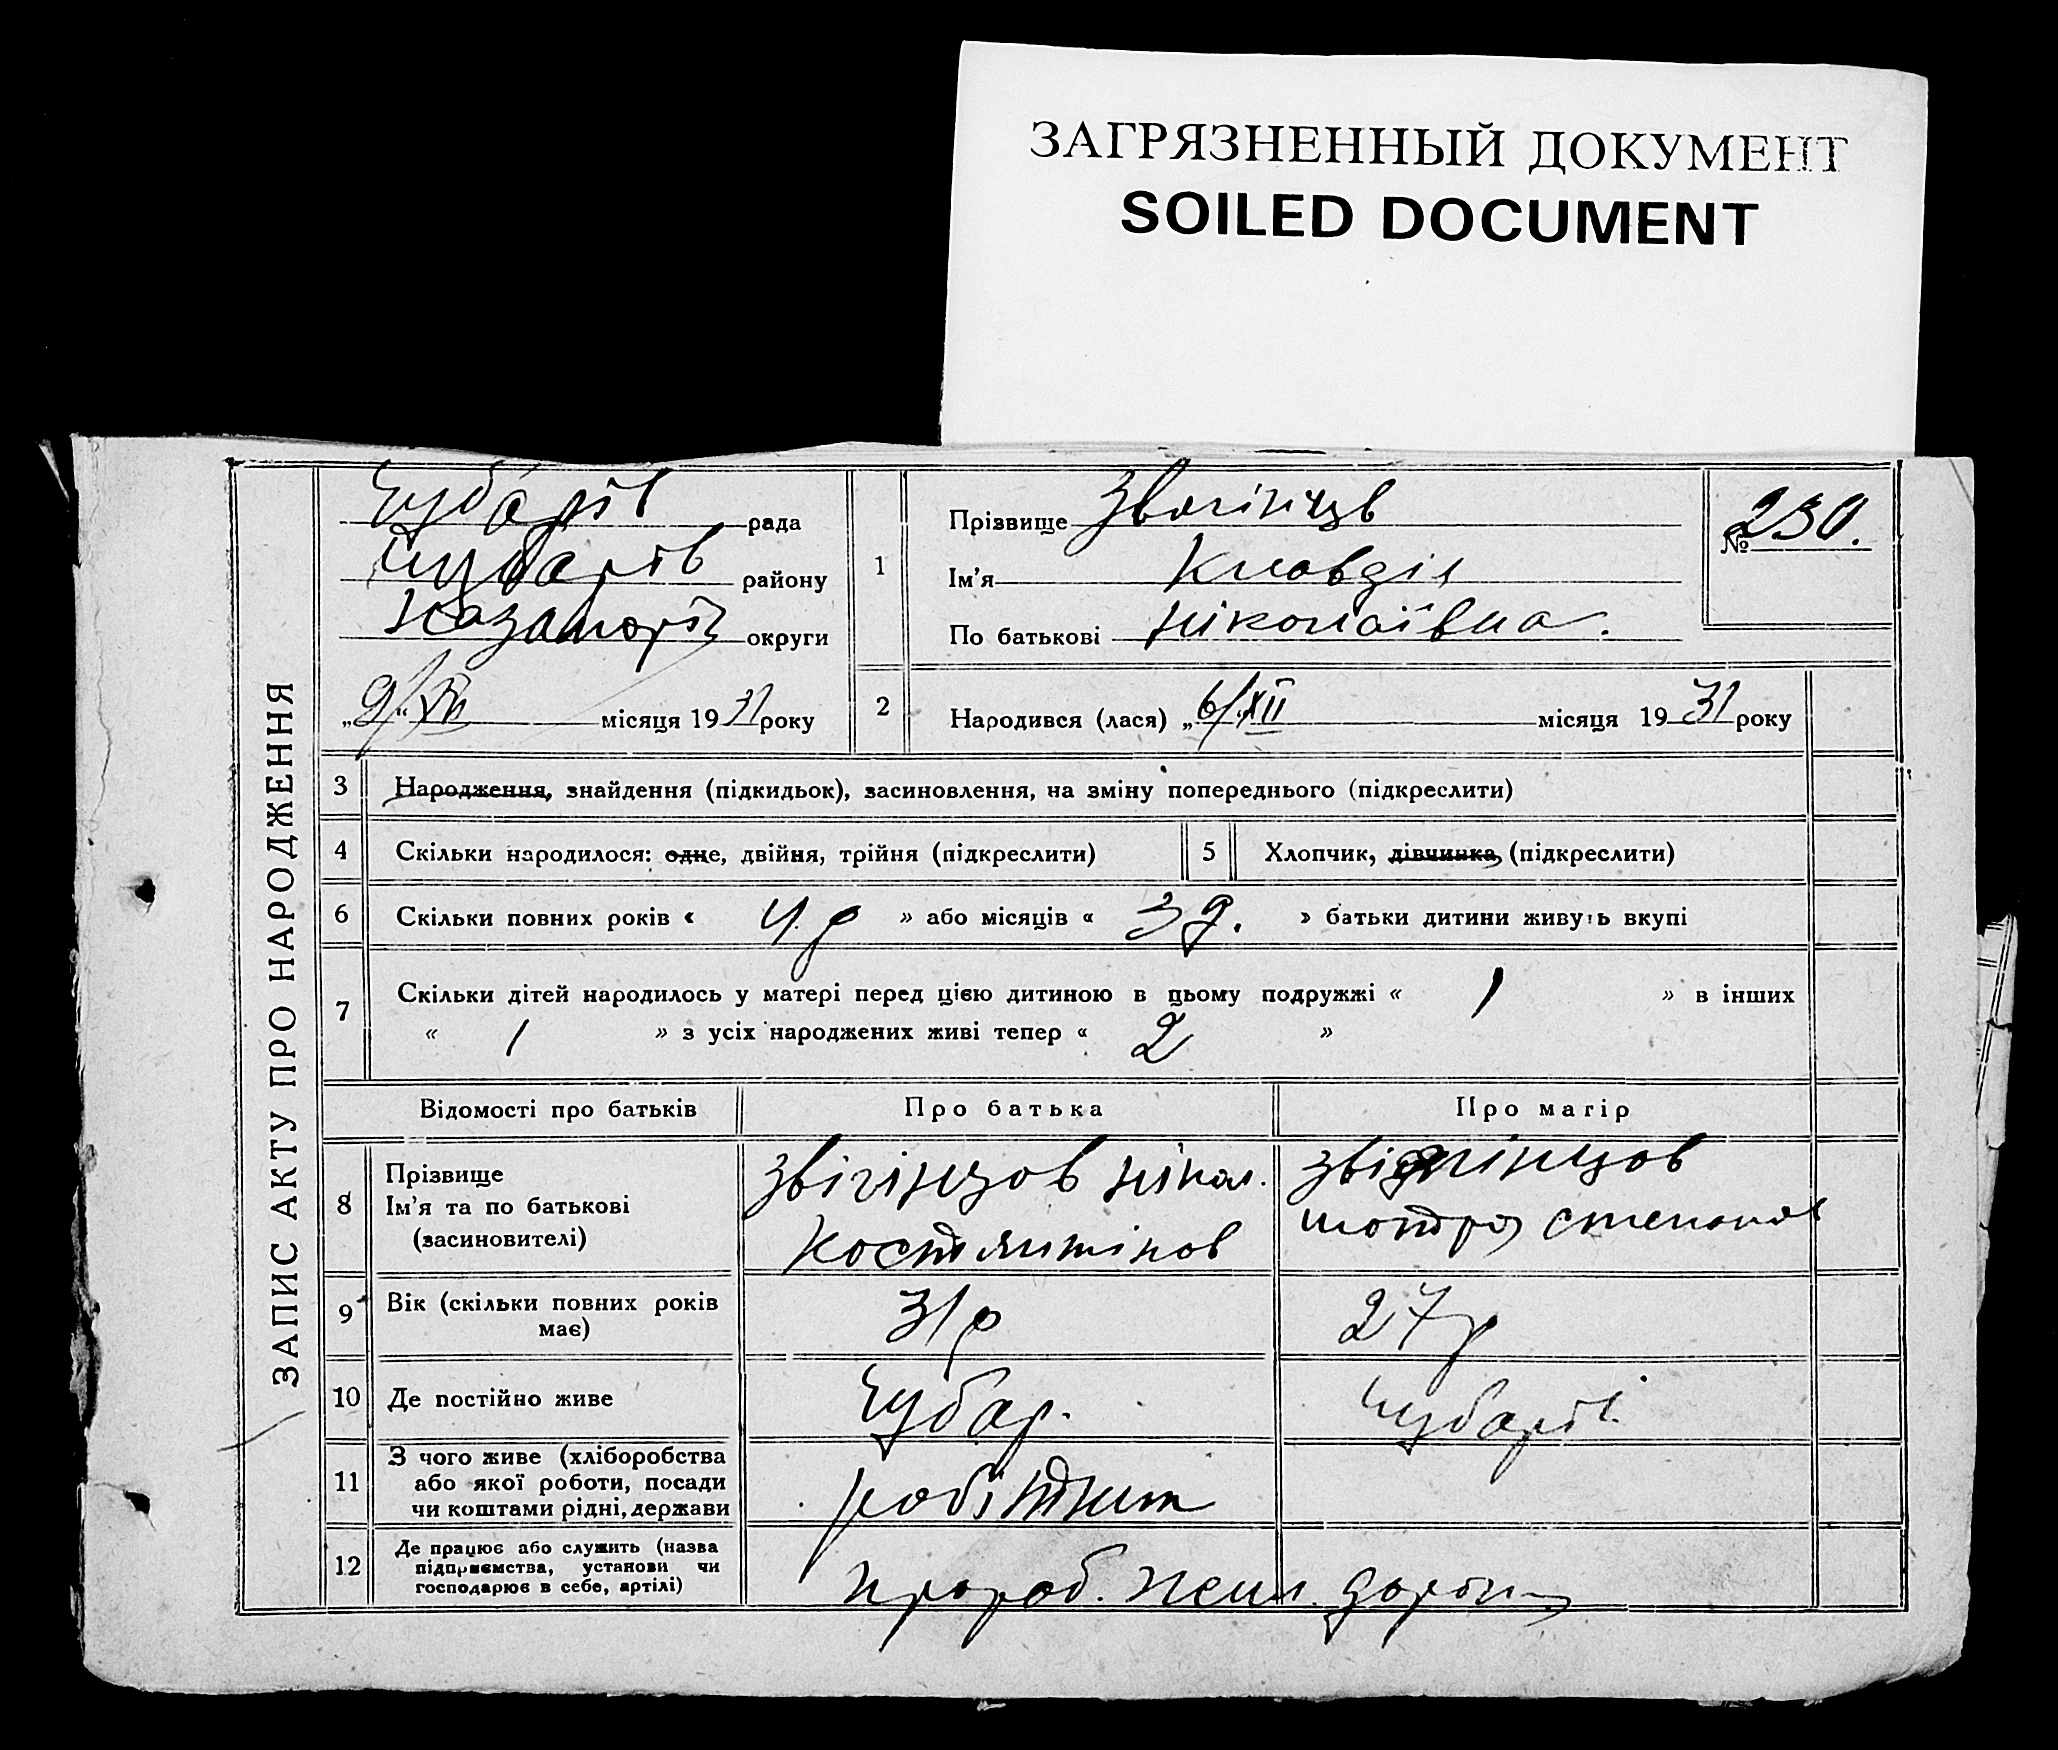 ЗАГРЯЗНЕННЫЙ ДОКУМЕНТ
SOILED DOCUMENT
ЗАПИС АКТУ ПРО НАРОДЖЕННЯ
Чубарів рада
Чубарів району
округи
„9/“ XII місяця 1931 року
1
Прізвище Звягінцев
Ім'я Клавдія
По батькові Ніколаївна.
№ 230.
2
Народився (лася) „6/XII місяця 1931 року
3 Народження, знайдення (підкидьок), засиновлення, на зміну попереднього (підкреслити)
4 Скільки народилося: одне, двійня, трійня (підкреслити)
5 Хлопчик, дівчинка, (підкреслити)
6 Скільки повних років « 4 р » або місяців « » батьки дитини живуть вкупі
7 Скільки дітей народилось у матері перед цією дитиною в цьому подружжі « 1 » в інших
« 1 » з усіх народжених живі тепер « 2 »
Відомості про батьків
Про батька
Про матір
8
Прізвище
Ім'я та по батькові
(засиновителі)
Звігінцов Нікол.
Костянтінов
Звігінцов
Степанов
9
Вік (скільки повних років
має)
31 р
27 р
10 Де постійно живе
Чубар.
Чубарів
11
З чого живе (хліборобства
або якої роботи, посади
чи коштами рідні, держави
робітник
12
Де працює або служить (назва
підприємства, установи чи
господарює в себе, артілі)
дороги